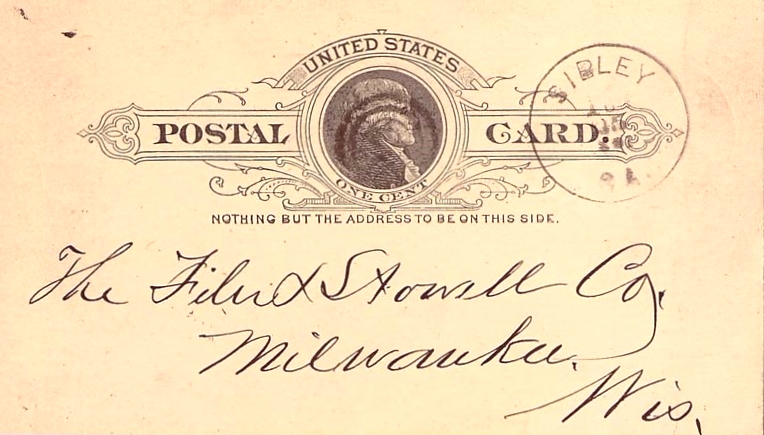 UNITED STATES
POSTAL CARD.
ONE CENT
SIBLEY
NOTHING BUT THE ADDRESS TO BE ON THIS SIDE.
The Filer & Stowell Co.
Milwaukee.
Wis.